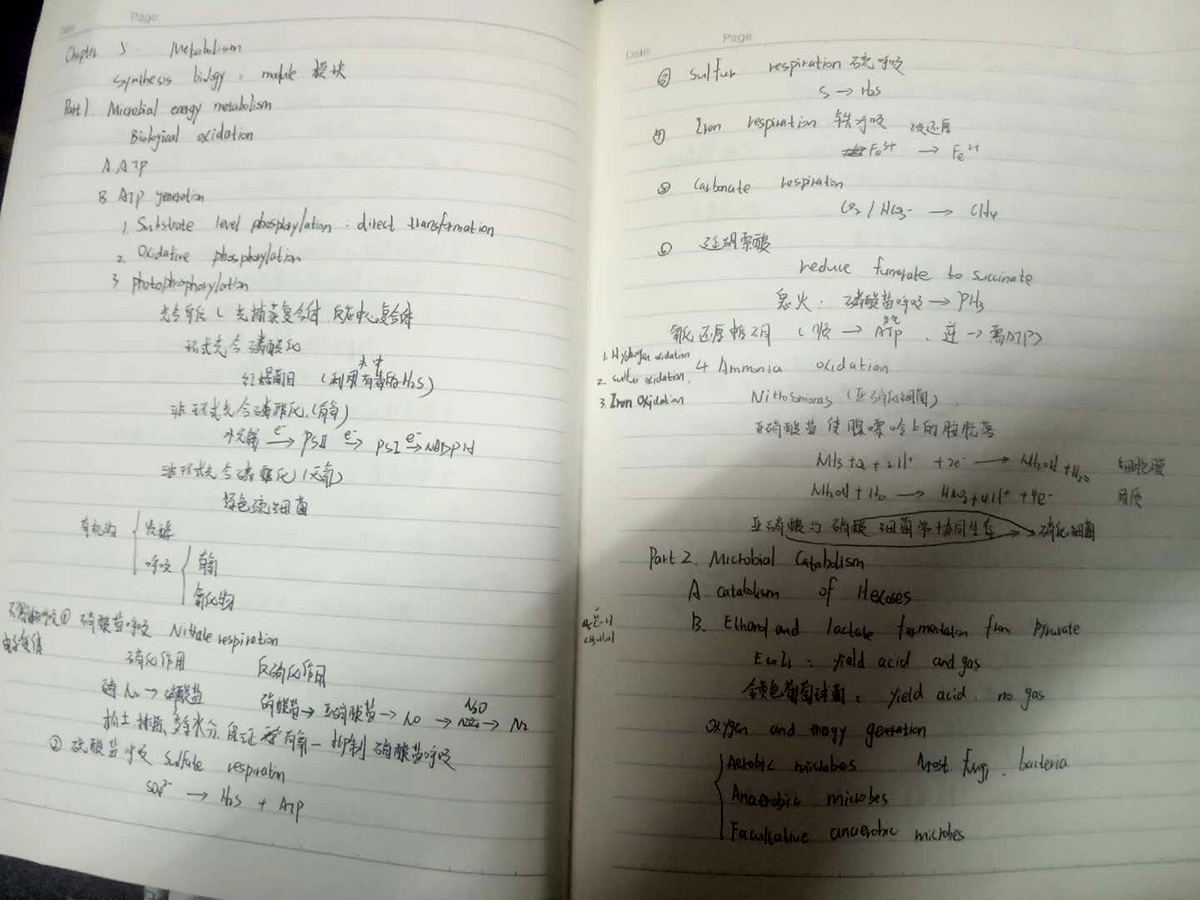 Date Page
Chapter 5. Metabolism
Synthesis biology: module 模块
Part 1 Microbial energy metabolism
Biological oxidation
A ATP
B. ATP generation
1. Substrate level phosphorylation. direct transformation
2. Oxidative phosphorylation
3 photophosphorylation
光合单位 ( 光捕获复合体. 反应中心复合体
环式光合磷酸化
红螺菌目 (利用有毒的H₂S)
水中
非环式光合磷酸化 (有氧)
水光解 e⁻→ PSⅡ e⁻→ PSI e⁻→ NADPH
非环式光合磷酸化 (无氧)
绿色硫细菌
有机物 发酵
呼吸 有氧
氧化物
① 硝酸盐呼吸 Nitrate respiration
电子受体
硝化作用 反硝化作用
硝酸盐 → 亚硝酸盐 → NO → N₂O → N₂
松土排涝 有氧 — 抑制硝酸盐呼吸
② 硫酸盐呼吸 Sulfate respiratin
SO₄²⁻ → H₂S + ATP
Date Page
③ Sulfur respiration 硫呼吸
S → H₂S
④ Iron respiration 铁呼吸 被还原
Fe³⁺ → Fe²⁺
⑤ Carbonate respiration
CO₂ / HCO₃⁻ → CH₄
⑥ 延胡索酸
reduce fumarate to succinate
鬼火. 磷酸盐呼吸 → PH₃
氧化还原 ( 顺 → 产生 ATP . 逆 → 需ATP)
1. Hydrogen oxidation
2. sulfur oxidation.
3. Iron Oxidation
4 Ammonia oxidation
Nitrosomonas (亚硝化细菌).
亚硝酸盐使腺嘌呤上的胺脱落
NH₃ + O₂ + 2H⁺ + 2e⁻ → NH₂OH + H₂O 细胞膜
NH₂OH + H₂O → HNO₂ + 4H⁺ + 4e⁻ 周质
亚硝酸与硝酸细菌常协同生存 → 硝化细菌
Part 2. Microbial Catabolism
A catabolism of Hexoses
B. Ethanol and lactate fermentation from Pyruvate
E coli: yield acid and gas
金黄色葡萄球菌: yield acid. no gas
Oxygen and energy generation
Aerobic microbes Most fungi, bacteria
Anaerobic microbes
Facultative anaerobic microbes